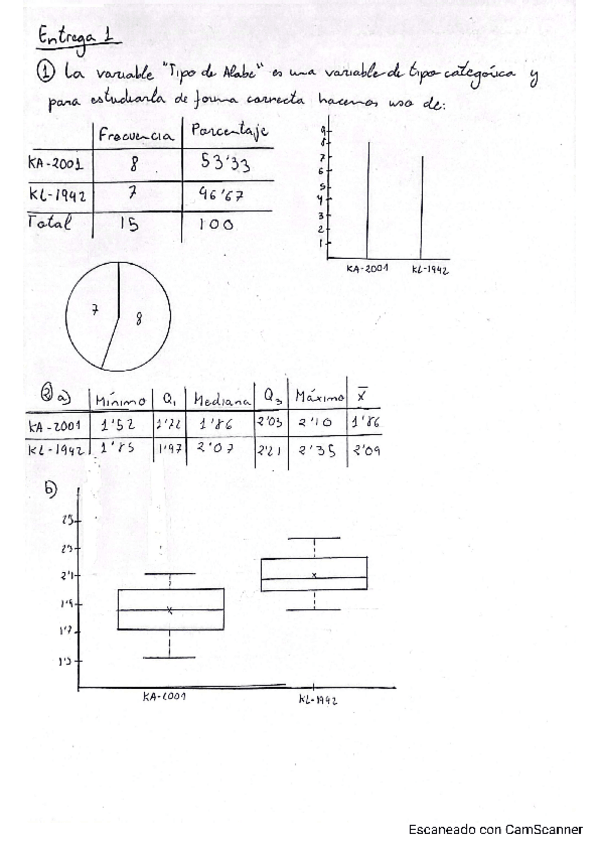 Entrega 1
① La variable "Tipo de Alabe" es una variable de tipo categórica y
para estudiarla de forma correcta hacemos uso de:
Frecuencia Porcentaje
KA-2001 8 53'33
KL-1942 7 46'67
Total 15 100
9
8
7
6
5
4
3
2
1
KA-2001 KL-1942
7 8
② a) Mínimo Q₁ Mediana Q₃ Máximo x̄
KA-2001 1'52 1'72 1'86 2'03 2'10 1'86
KL-1942 1'85 1'97 2'07 2'21 2'35 2'09
b)
2'5
2'3
2'1
1'9
1'7
1'5
KA-2001 KL-1942
Escaneado con CamScanner